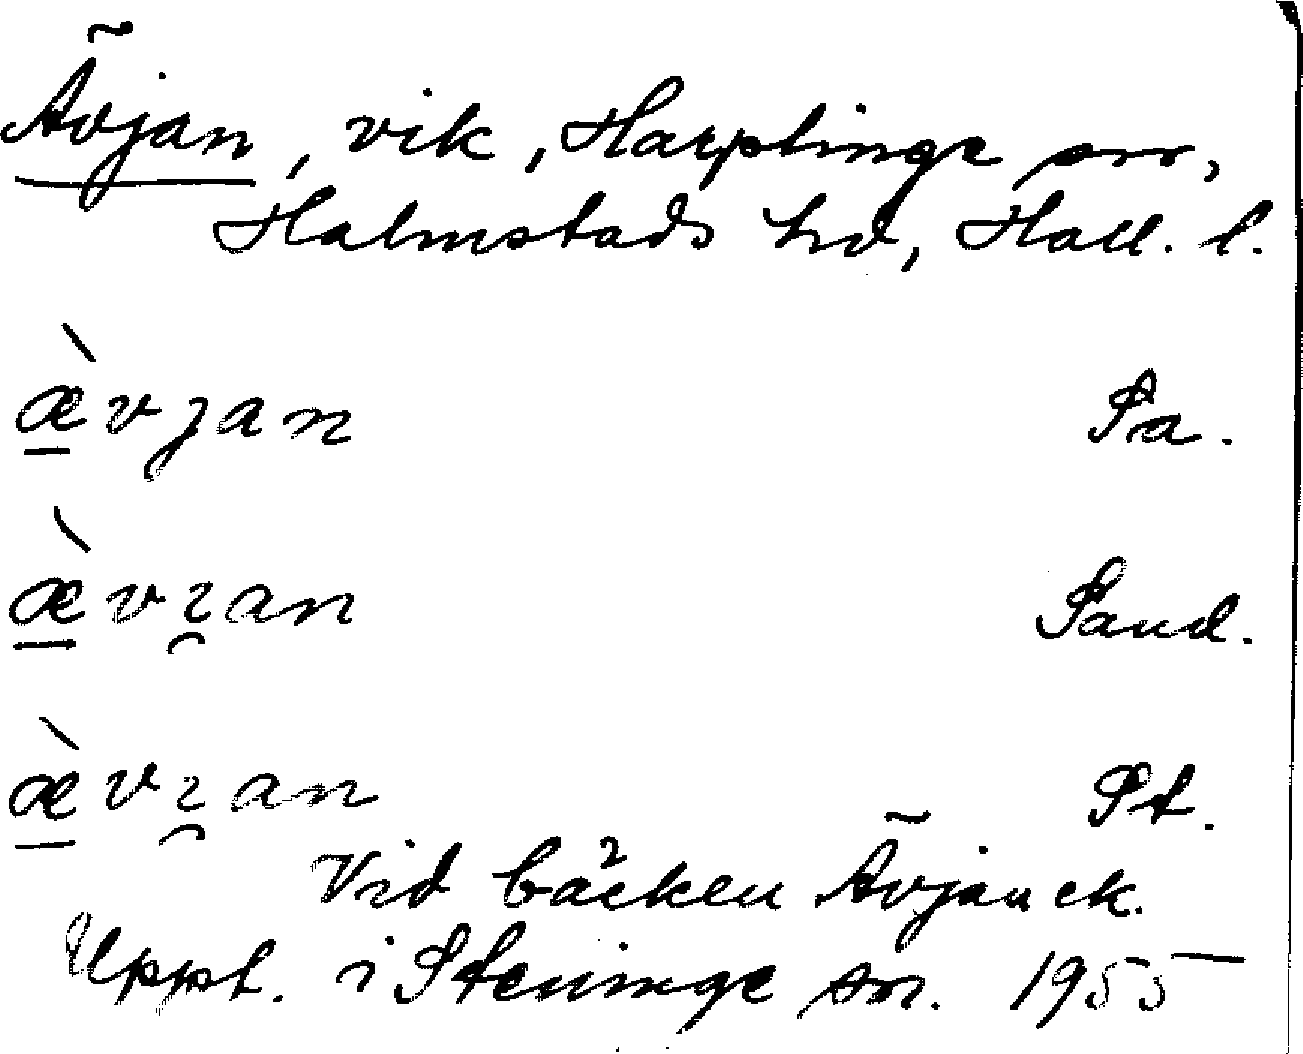 Ävjan, vik, Harplinge sn,
Halmstads hd, Hall. l.
æ̠̀vjan Sa.
æ̠̀vı̯an Sand.
æ̠̀vı̯an St.
Vid bäcken Ävjan ek.
Uppt. i Steninge sn. 1955